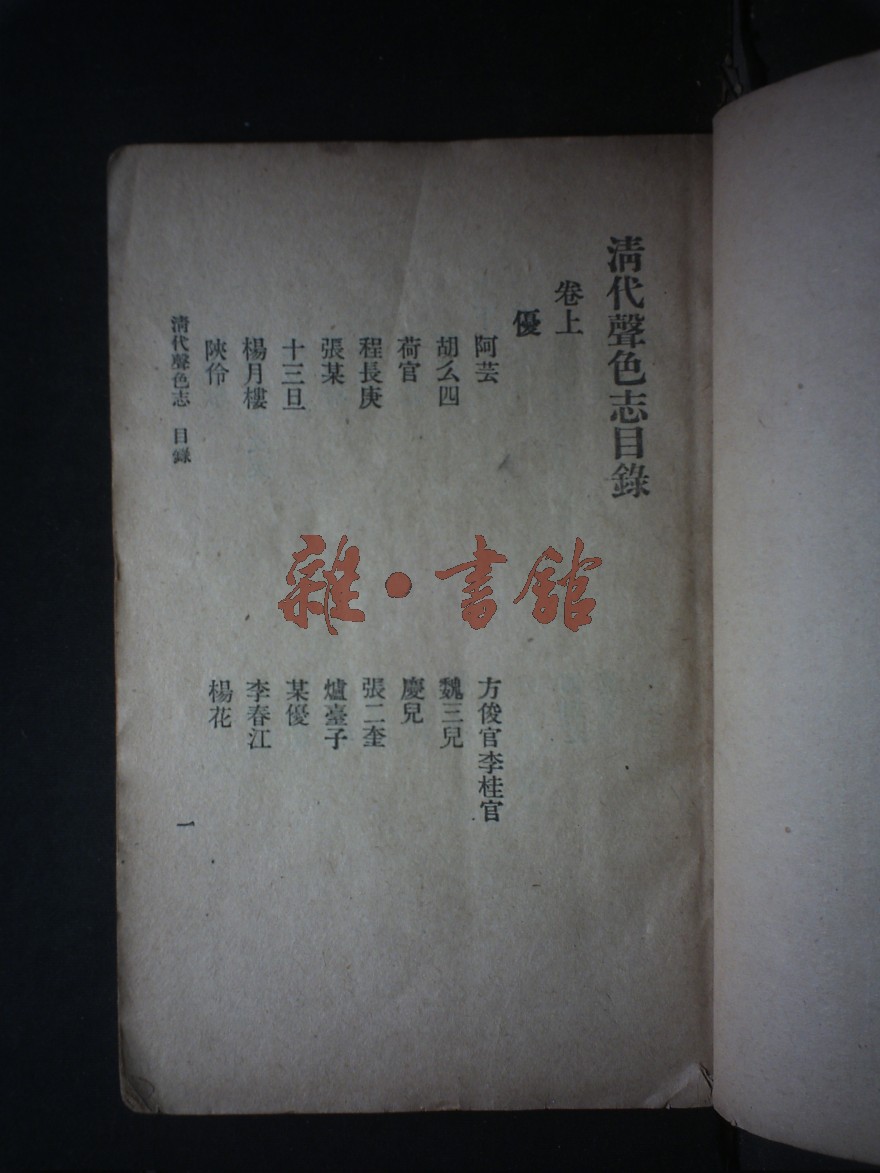 清代聲色志目錄
卷上
優
阿芸
方俊官李桂官
胡么四
魏三兒
荷官
慶兒
程長庚
張二奎
張某
爐臺子
十三旦
某優
楊月樓
李春江
陝伶
楊花
清代聲色志 目錄
一
雜·書館